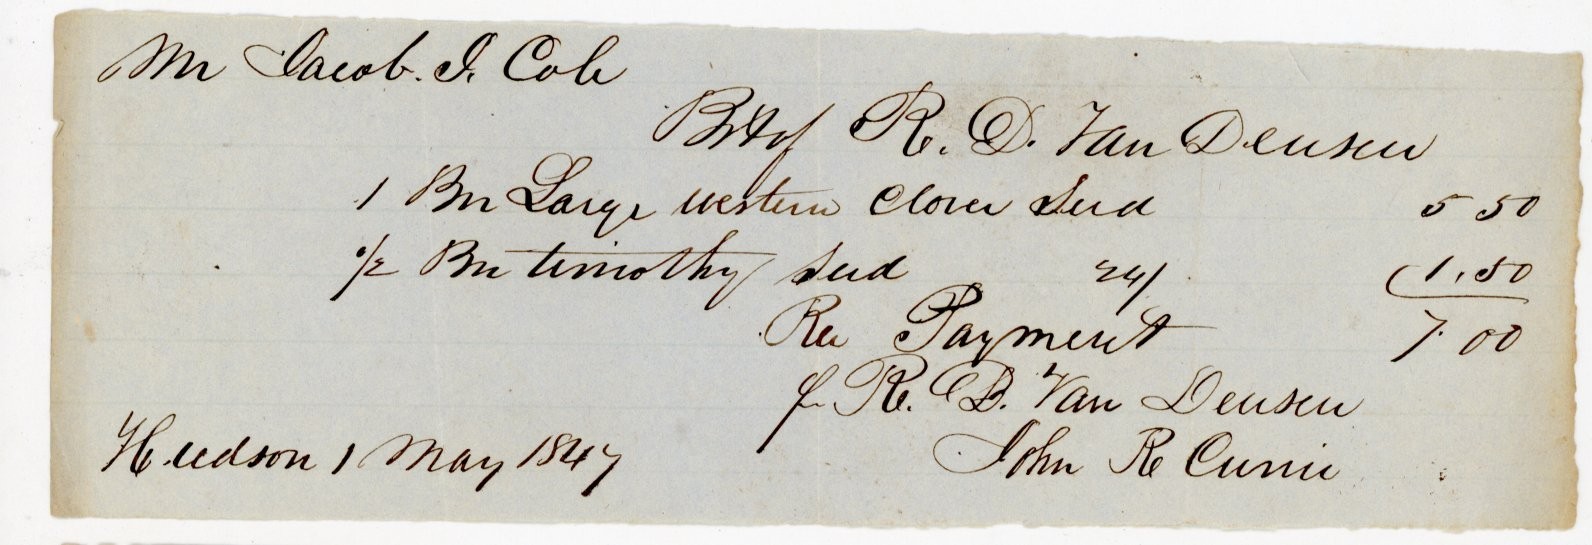 Mr Jacob. I. Cole
Bot of R. D. Van Deusen
1 Bu Large western Clover Seed 5 50
1/2 Bu timothy seed 24/ 1.50
Rec Payment 7.00
for R. D. Van Deusen
John R Currie
Hudson 1 May 1847